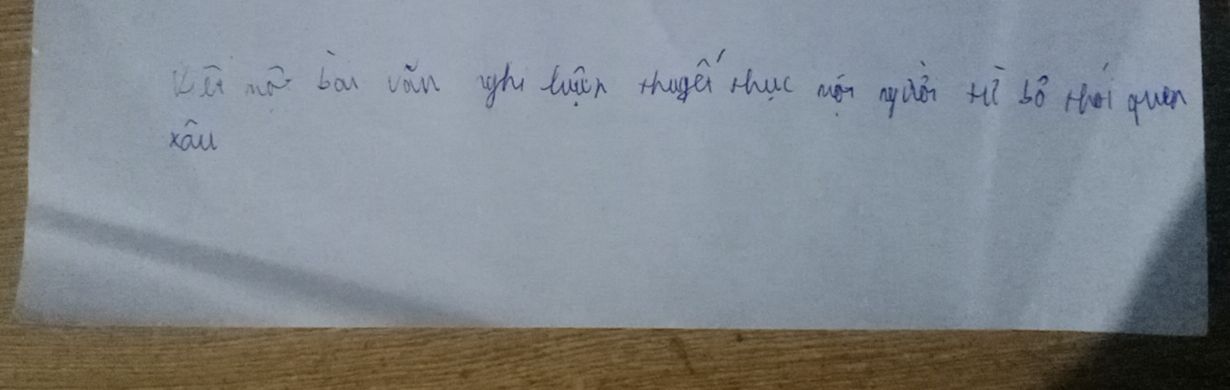 Viết một bài văn nghị luận thuyết thục mọi người từ bỏ thói quen
xấu